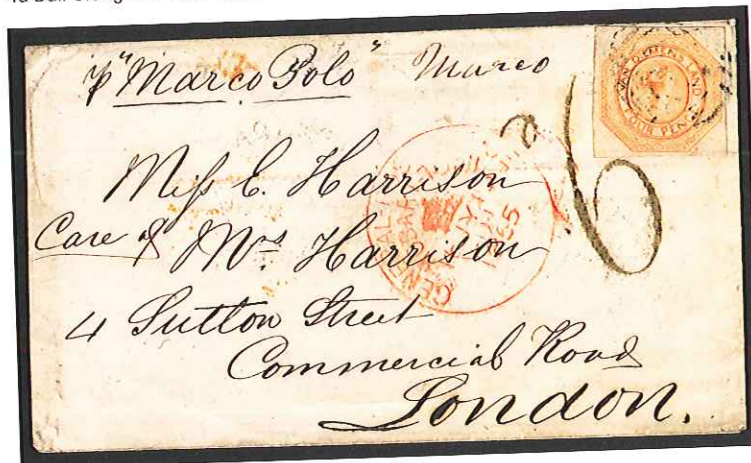 p "Marco Polo" Marco
VAN DIEMENS LAND
FOUR PENCE
6
Miss E. Harrison
Care of Mrs. Harrison
4 Sutton Street
Commercial Road
London.
GENERAL
1855